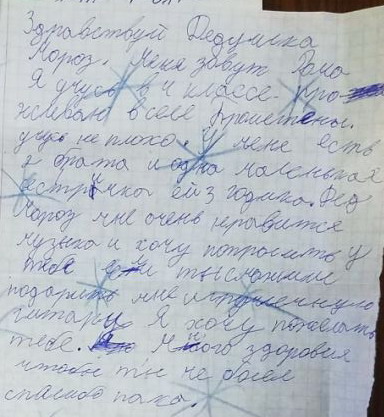 Здравствуй Дедушка
Мороз. Меня завут Рома
Я учусь в 4 классе. Про-
живаю в селе
учусь не плохо. У меня есть
2 брата и одна маленькая
сестричка ей 3 годика. Дед
Мороз мне очень нравится
музыка и хочу попросить у
тебя
подарить мне
гитару Я хочу пожелать
тебе. Много здоровия
чтобы ты не болел
спасибо пока.